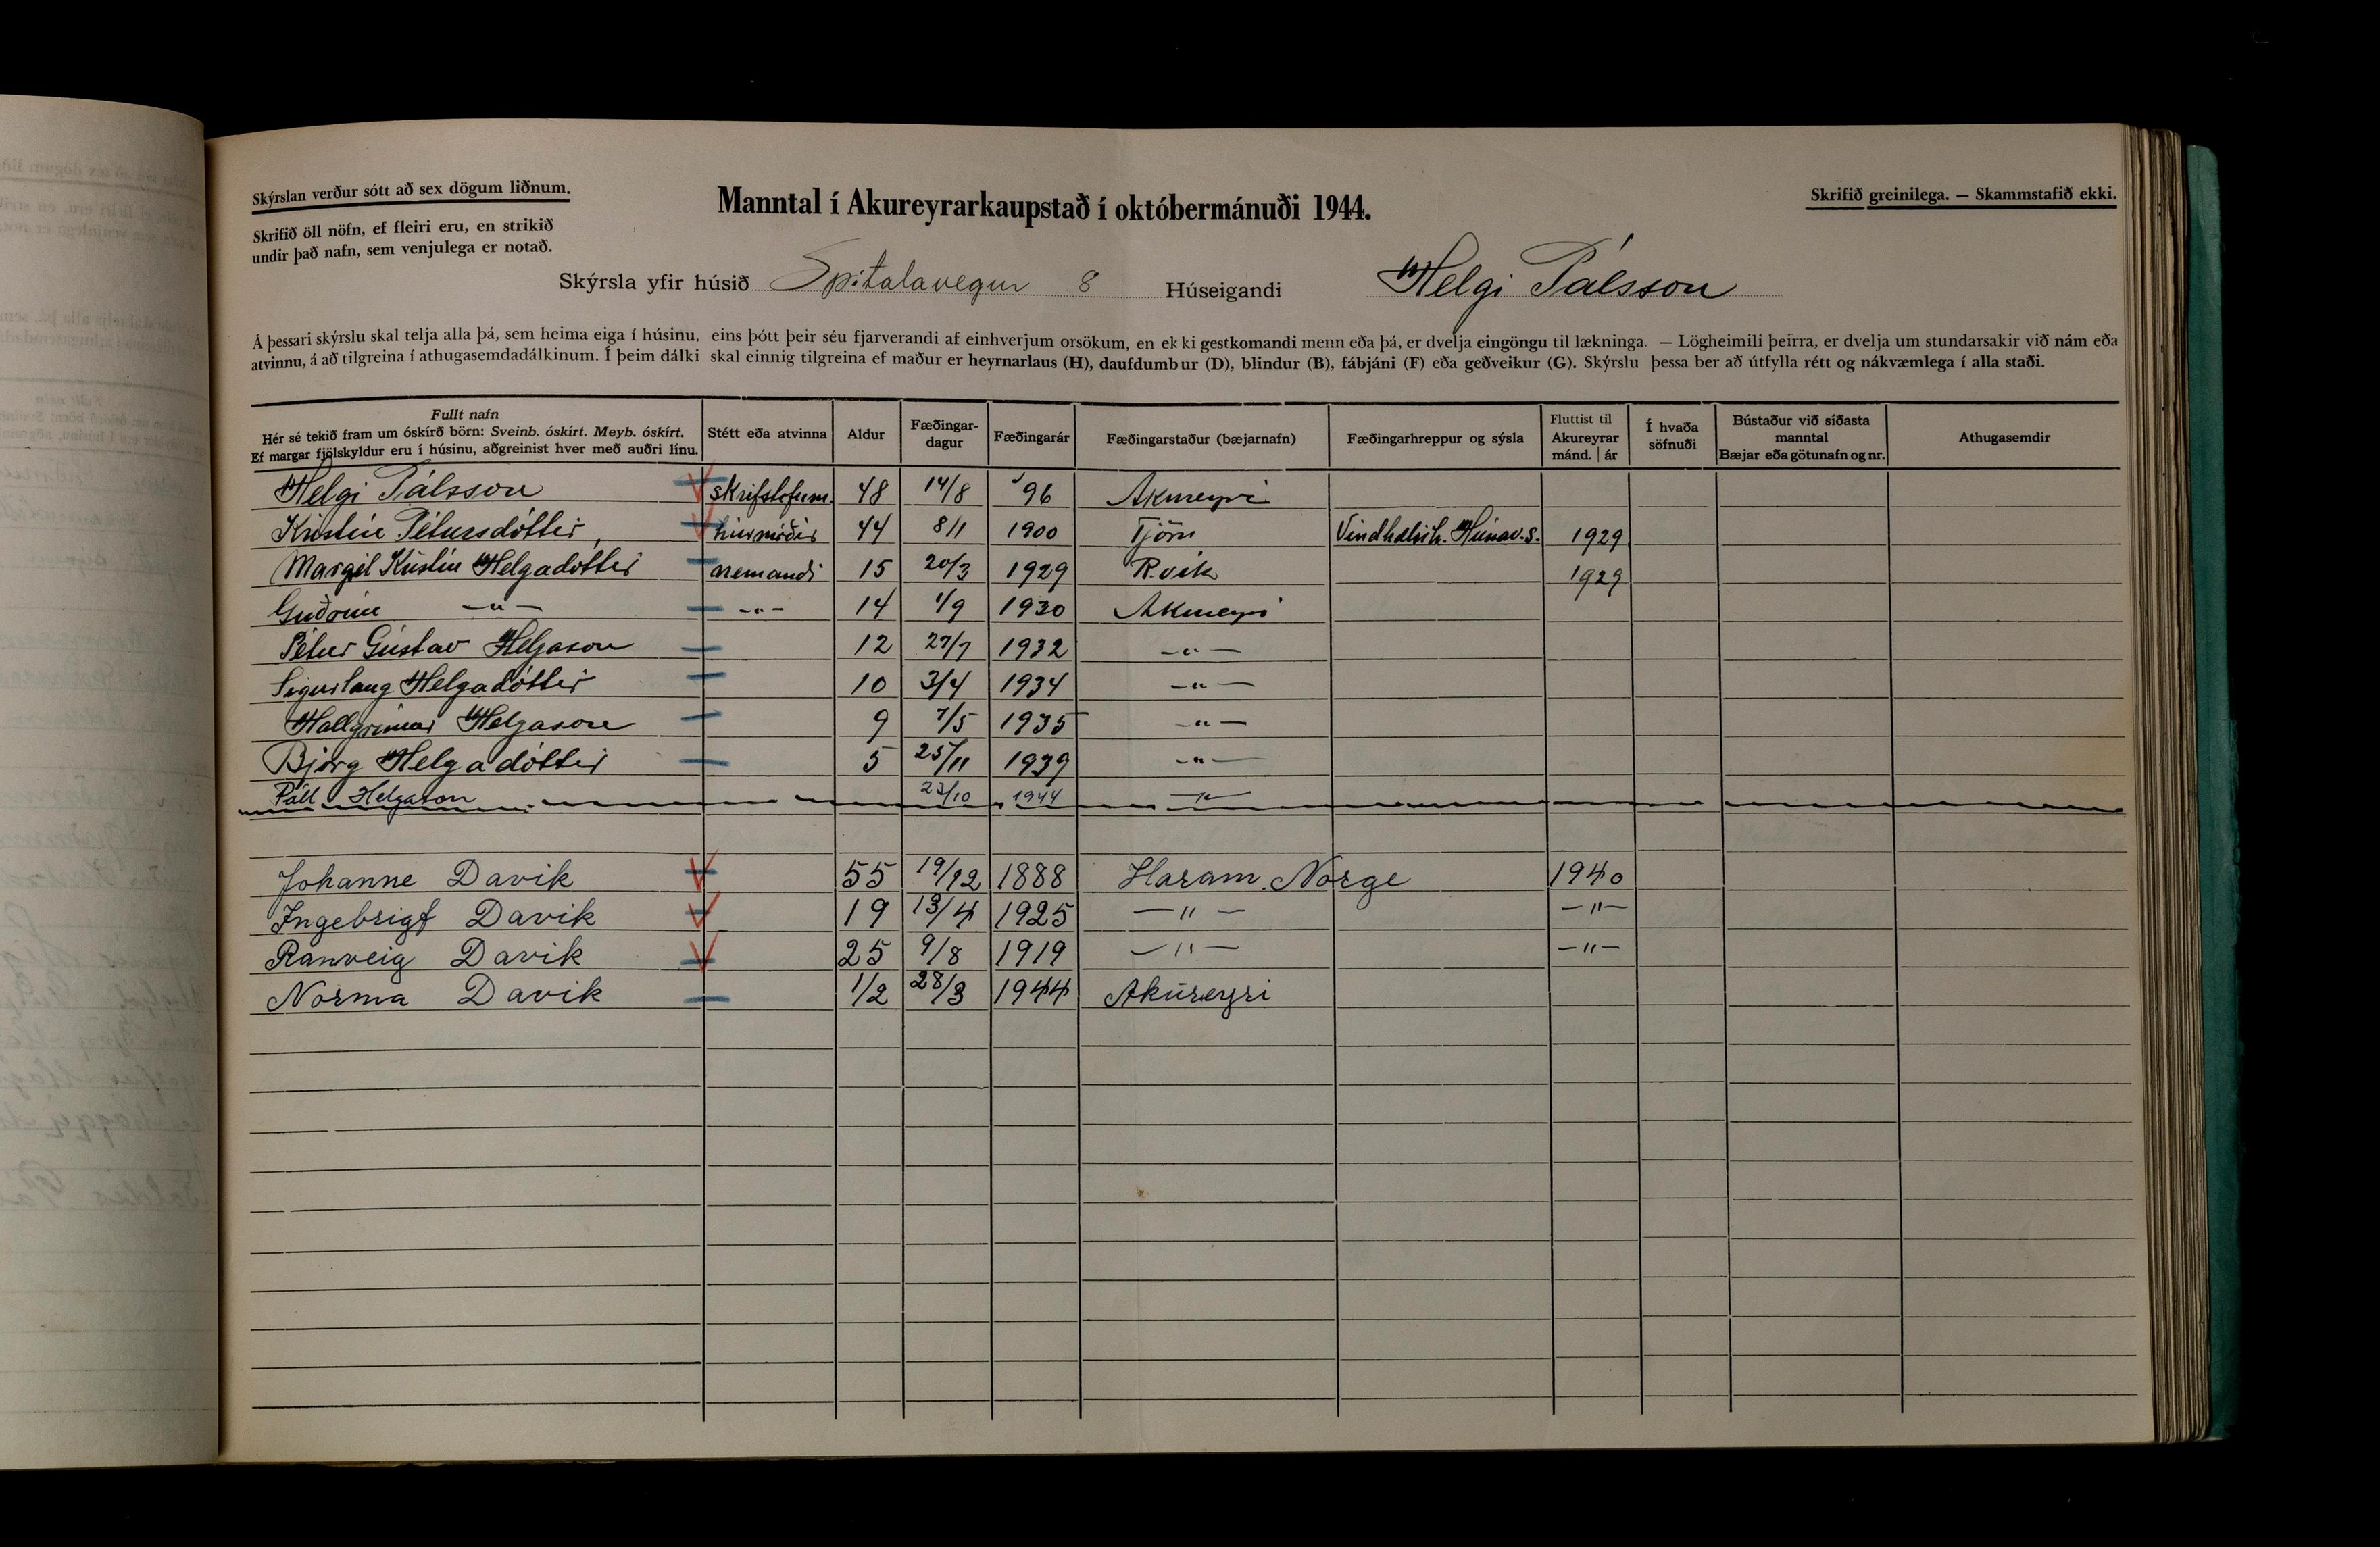 Skýrslan verður sótt að sex dögum liðnum.
Skrifið öll nöfn, ef fleiri eru, en strikið
undir það nafn, sem venjulega er notað.
Manntal í Akureyrarkaupstað í októbermánuði 1944.
Skrifið greinilega. — Skammstafið ekki.
Skýrsla yfir húsið Spítalavegur 8 Húseigandi Helgi Pálsson
Á þessari skýrslu skal telja alla þá, sem heima eiga í húsinu, eins þótt þeir séu fjarverandi af einhverjum orsökum, en ekki gestkomandi menn eða þá, er dvelja eingöngu til lækninga. — Lögheimili þeirra, er dvelja um stundarsakir við nám eða
atvinnu, á að tilgreina í athugasemdadálkinum. Í þeim dálki skal einnig tilgreina ef maður er heyrnarlaus (H), daufdumbur (D), blindur (B), fábjáni (F) eða geðveikur (G). Skýrslu þessa ber að útfylla rétt og nákvæmlega í alla staði.
Fullt nafn
Hér sé tekið fram um óskírð börn: Sveinb. óskírt. Meyb. óskírt.
Ef margar fjölskyldur eru í húsinu, aðgreinist hver með auðri línu.
Stétt eða atvinna
Aldur
Fæðingar-
dagur
Fæðingarár
Fæðingarstaður (bæjarnafn)
Fæðingarhreppur og sýsla
Fluttist til
Akureyrar
mánd. | ár
Í hvaða
söfnuði
Bústaður við síðasta
manntal
Bæjar eða götunafn og nr.
Athugasemdir
Helgi Pálsson skrifstofum. 48 14/8 '96 Akureyri
Kristín Pétursdóttir, húsmóðir 44 8/1 1900 Tjörn Vindhælish. Húnav.s. 1929
Margét Kristín Helgadóttir nemandi 15 20/3 1929 R.vík 1929
Guðrún —"— —"— 14 1/9 1930 Akureyri
Pétur Gústav Helgason 12 27/7 1932 —"—
Sigurlaug Helgadóttir 10 3/4 1934 —"—
Hallgrímur Helgason 9 7/5 1935 —"—
Björg Helgadóttir 5 25/11 1939 —"—
Páll Helgason 23/10 1944 —"—
Johanne Davik 55 19/12 1888 Haram. Norge 1940
Ingebrigt Davik 19 13/4 1925 —"— —"—
Ranveig Davik 25 9/8 1919 —"— —"—
Norma Davik 1/2 28/3 1944 Akureyri